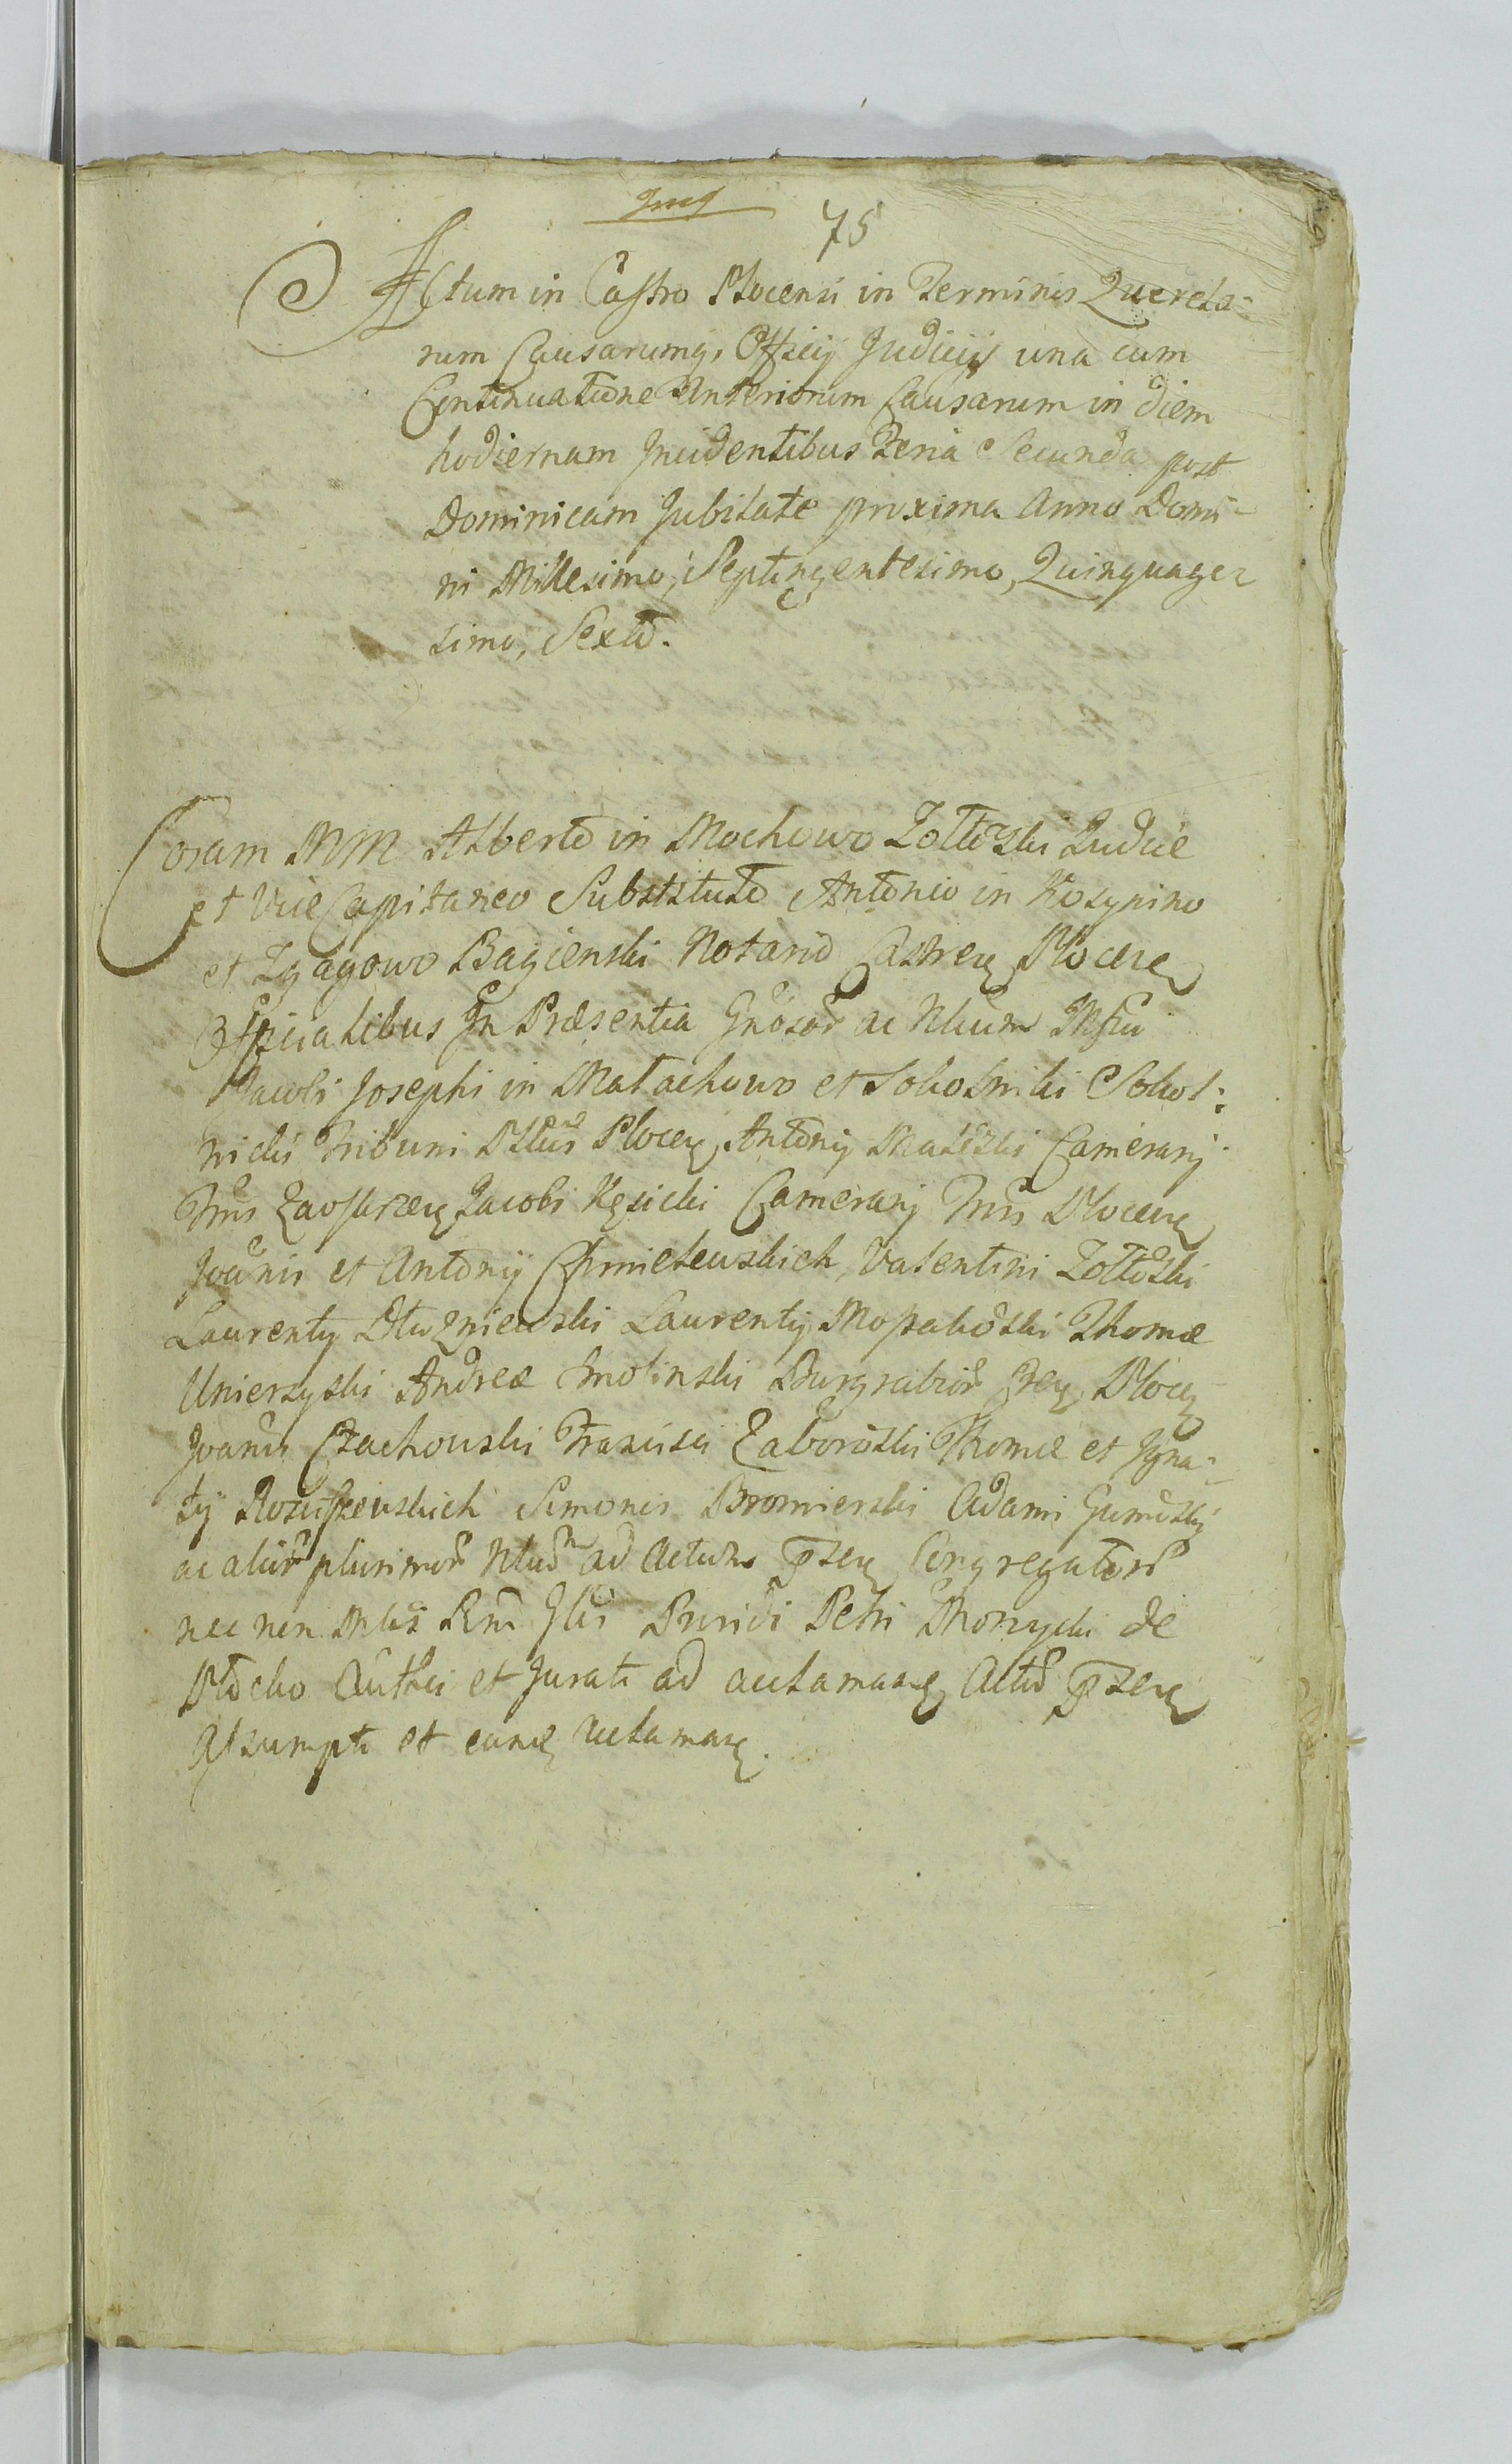 75
Actum in Castro Plocensi in Terminis Querela:
rum Causarumq, Officij Judicij una cum
Continuatione Anteriorum Causarum in diem
hodiernam Incidentibus Feria Secunda post
Dominicam Jubilate proxima Anno Domi-
ni Millesimo, Septingentesimo, Quinquage-
simo, Sexto.
Coram MM Alberto in Mochowo Zoltoski Judice
et Vice Capitaneo Substituto Antonio in Kosynino
et Zgagowo Bagienski Notario Castren Plocen
Officialibus In Præsentia Gnosor ac Nlium Mfici
Jacobi Josephi in Matachowo et Sokolniki Sokol:
nicki Tribuni Pltus Plocen, Antonij Camerarij
Trris Zawskrzen Jacobi Kęsicki Camerarij Trris Plocen
Joannis et Antonij Chmielewskich, Valentini Zoltoski
Laurentij Dluzniewski Laurentij Mopakoski Thomæ
Unierzyski Andreæ Smolinski Burgrabior Plocen
Joannis Czachowski Francisci Zaboroski Thomæ et Igna:
tij Rosciszewskich Simonis Bromierski Adami Gumoski
ac alior plurimor Nlium ad Actum pnsen Congregator
nec non Mlis Petri de
Plocko et Jurati ad acclaman Actum pnsen
Assumpti et eund acclaman.